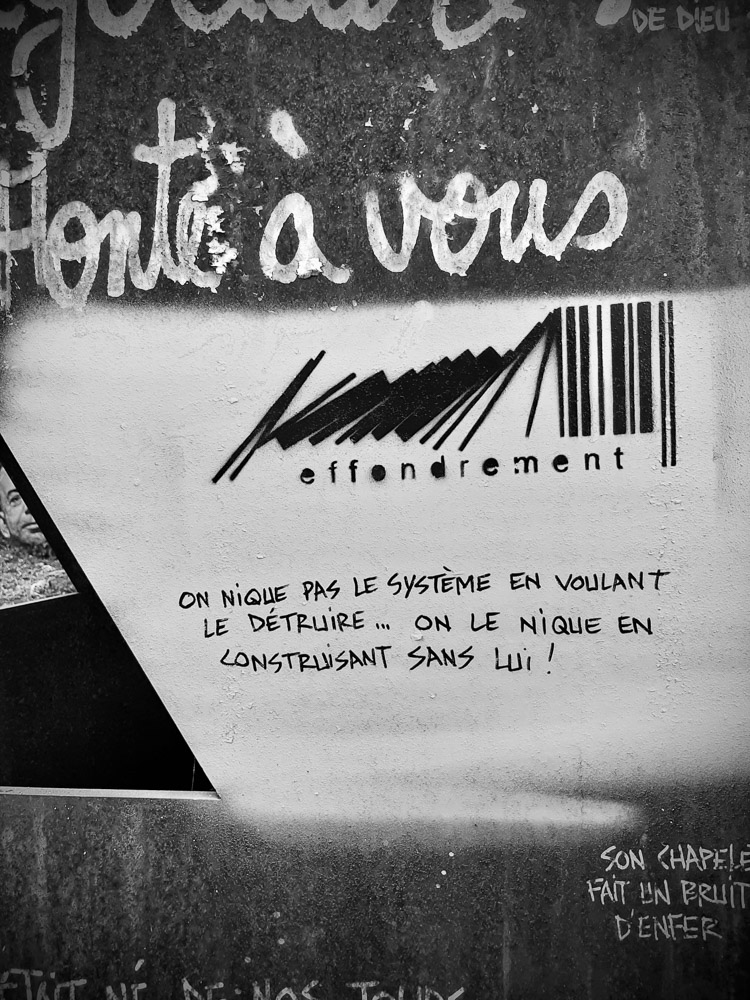 DE DIEU
Honte à vous
effondrement
ON NIQUE PAS LE SYSTÈME EN VOULANT
LE DÉTRUIRE... ON LE NIQUE EN
CONSTRUISANT SANS LUI !
SON CHAPELE
FAIT UN BRUIT
D'ENFER
ETAIT NÉ DE NOS JOURS